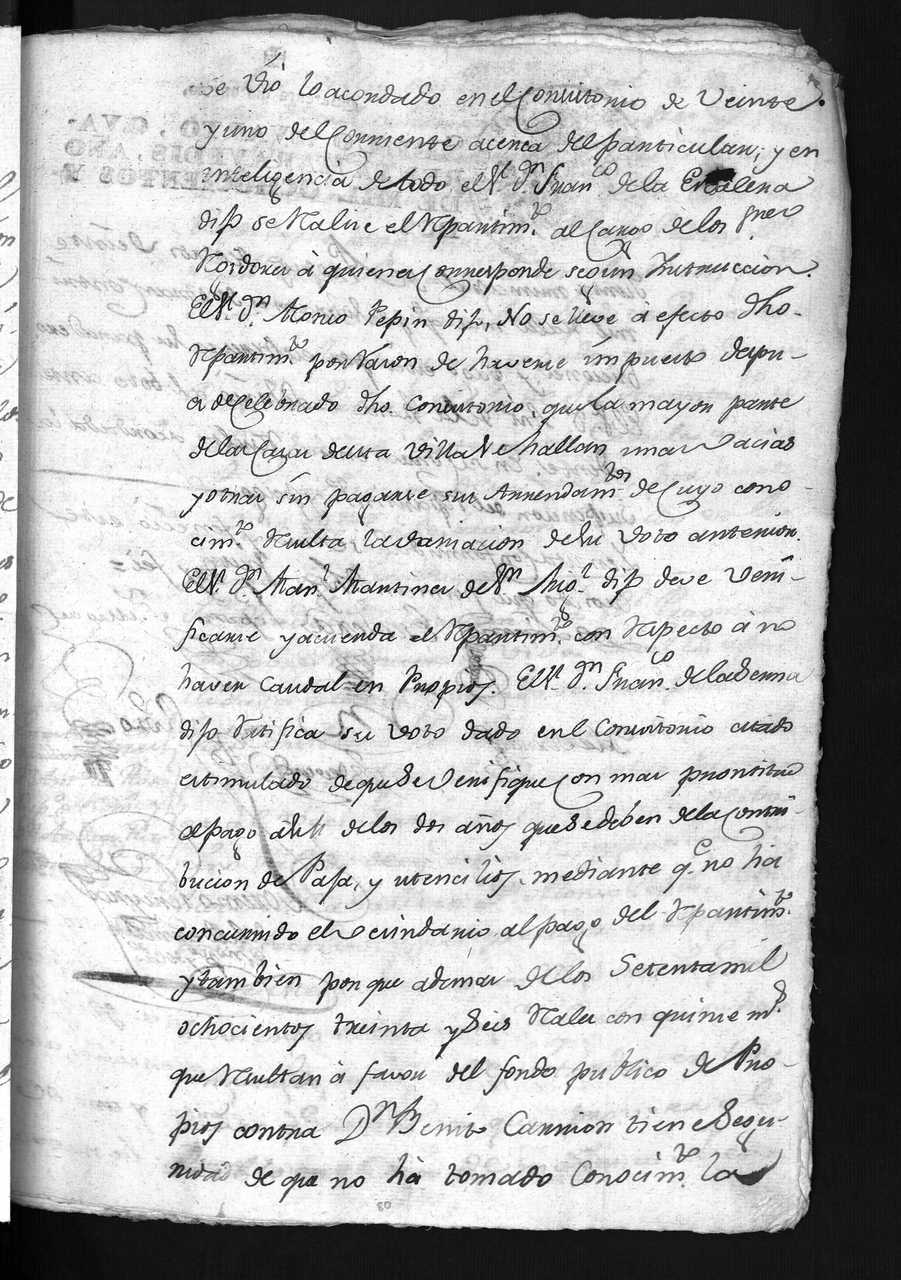 se vió lo acordado en el Consistorio de Veinte
y uno del Corriente acerca del particular; y en
inteligencia de todo, el Sr. Dn. Franco. de la Escalera
dijo se Realize el Repartimto. al Cargo de los Sres.
Rexidores á quienes corresponde segun Instruccion.
El Sr. Dn. Alonso Pepin dijo, No se lleve á efecto dho.
Repartimto. por razon de haverse impuesto despu-
es de Celebrado dho. Consistorio, que la mayor parte
de las Casas de esta Villa se hallan unas vacias
y otras sin pagarse sus Arrendamtos. de cuyo cono-
cimto. resulta la variacion de su voto anterior.
El Sr. Dn. Man.l Martinez de Sn. Mig.l dijo deve veri-
ficarse y acienda el Repartimto. con respecto á no
haver caudal en Propios. El Sr. Dn. Franco. de la Serna
dijo ratifica su voto dado en el Consistorio citado
estimulado de que se verifique con mas prontitud
el pago á S.M. de los dos años que se deben de la contri-
bucion de Paja, y utencilios, mediante q.e no ha
concurrido el vecindario al pago del Repartimto.
y tambien por que ademas de los Setenta mil
ochocientos treinta y seis Rales con quince ms.
que resultan á favor del fondo publico de Pro-
pios contra Dn. Benito Carrion tiene segu-
ridad de que no há tomado Conocimto. la